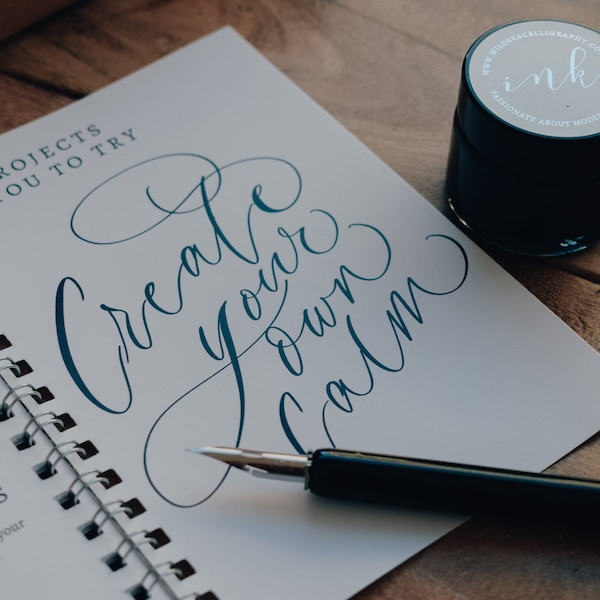 PROJECTS
YOU TO TRY
Create
your
own
calm
your
WWW.WILDSEACALLIGRAPHY.CO
ink
PASSIONATE ABOUT MODE